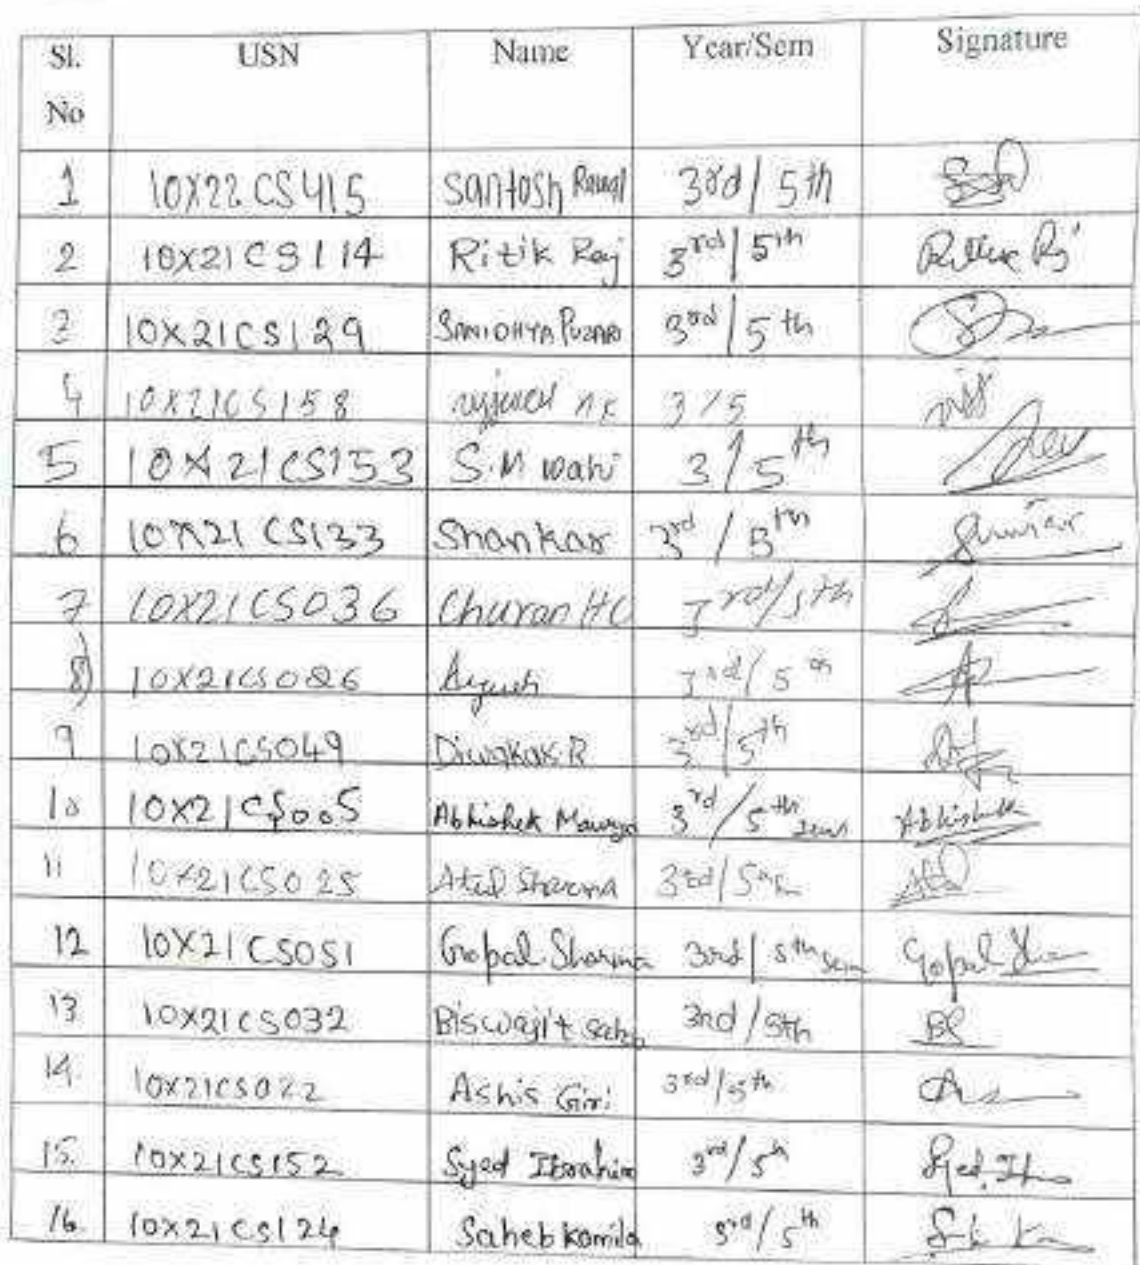 Sl. No USN Name Year/Sem Signature
1 10X22CS415 Santosh Rawal 3rd/5th
2 10X21CS114 Ritik Raj 3rd/5th Ritik Raj
3 10X21CS129 SANIDHYA 3rd/5th
4 10X21CS158 ujjwal 3/5
5 10X21CS153 S.M wahi 3/5th
6 10X21CS133 Shankar 3rd/5th
7 10X21CS036 Charan HC 3rd/5th
8) 10X21CS026 3rd/5th
9 10X21CS049 Diwakar R 3rd/5th
10 10X21CS005 Abhishek Maurya 3rd/5th sem Abhishek
11 10X21CS025 Atul Sharma 3rd/5th Atul
12 10X21CS051 Gopal Sharma 3rd/5th sem Gopal
13 10X21CS032 Biswajit Saha 3rd/5th BS
14. 10X21CS022 Ashis Giri 3rd/5th
15. 10X21CS152 Syed Ibrahim 3rd/5th Syed
16. 10X21CS124 Saheb Kamila 3rd/5th